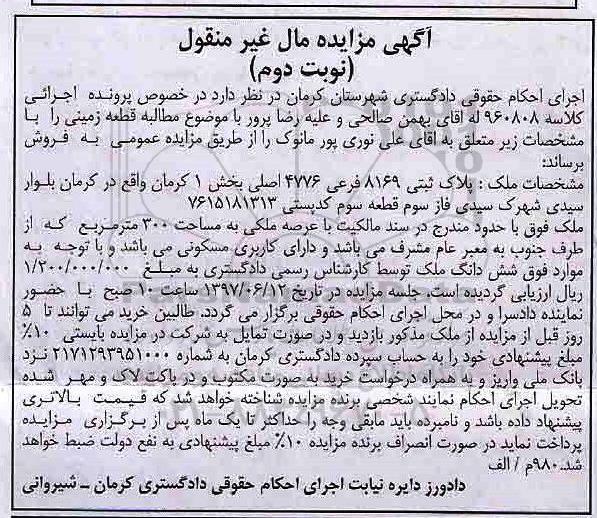 آگهی مزایده مال غیر منقول
(نوبت دوم)
اجرای احکام حقوقی دادگستری شهرستان کرمان در نظر دارد در خصوص پرونده اجرائی
کلاسه ۹۶۰۸۰۸ له اقای بهمن صالحی و علیه رضا پرور با موضوع مطالبه قطعه زمینی را با
مشخصات زیر متعلق به اقای علی نوری پور مانوک را از طریق مزایده عمومی به فروش
برساند:
مشخصات ملک : پلاک ثبتی ۸۱۶۹ فرعی ۴۷۷۶ اصلی بخش ۱ کرمان واقع در کرمان بلوار
سیدی شهرک سیدی فاز سوم قطعه سوم کدپستی ۷۶۱۵۱۸۱۳۱۳
ملک فوق با حدود مندرج در سند مالکیت با عرصه ملکی به مساحت ۳۰۰ مترمربع که از
طرف جنوب به معبر عام مشرف می باشد و دارای کاربری مسکونی می باشد و با توجه به
موارد فوق شش دانگ ملک توسط کارشناس رسمی دادگستری به مبلغ ۱/۲۰۰/۰۰۰/۰۰۰
ریال ارزیابی گردیده است. جلسه مزایده در تاریخ ۱۳۹۷/۰۶/۱۲ ساعت ۱۰ صبح با حضور
نماینده دادسرا و در محل اجرای احکام حقوقی برگزار می گردد. طالبین خرید می توانند تا ۵
روز قبل از مزایده از ملک مذکور بازدید و در صورت تمایل به شرکت در مزایده بایستی ۱۰٪
مبلغ پیشنهادی خود را به حساب سپرده دادگستری کرمان به شماره ۲۱۷۱۲۹۳۹۵۱۰۰۰ نزد
بانک ملی واریز و به همراه درخواست خرید به صورت مکتوب و در پاکت لاک و مهر شده
تحویل اجرای احکام نمایند شخصی برنده مزایده شناخته خواهد شد که قیمت بالاتری
پیشنهاد داده باشد و نامبرده باید مابقی وجه را حداکثر تا یک ماه پس از برگزاری مزایده
پرداخت نماید در صورت انصراف برنده مزایده ۱۰٪ مبلغ پیشنهادی به نفع دولت ضبط خواهد
شد.۹۸۰م / الف
دادورز دایره نیابت اجرای احکام حقوقی دادگستری کرمان ـ شیروانی